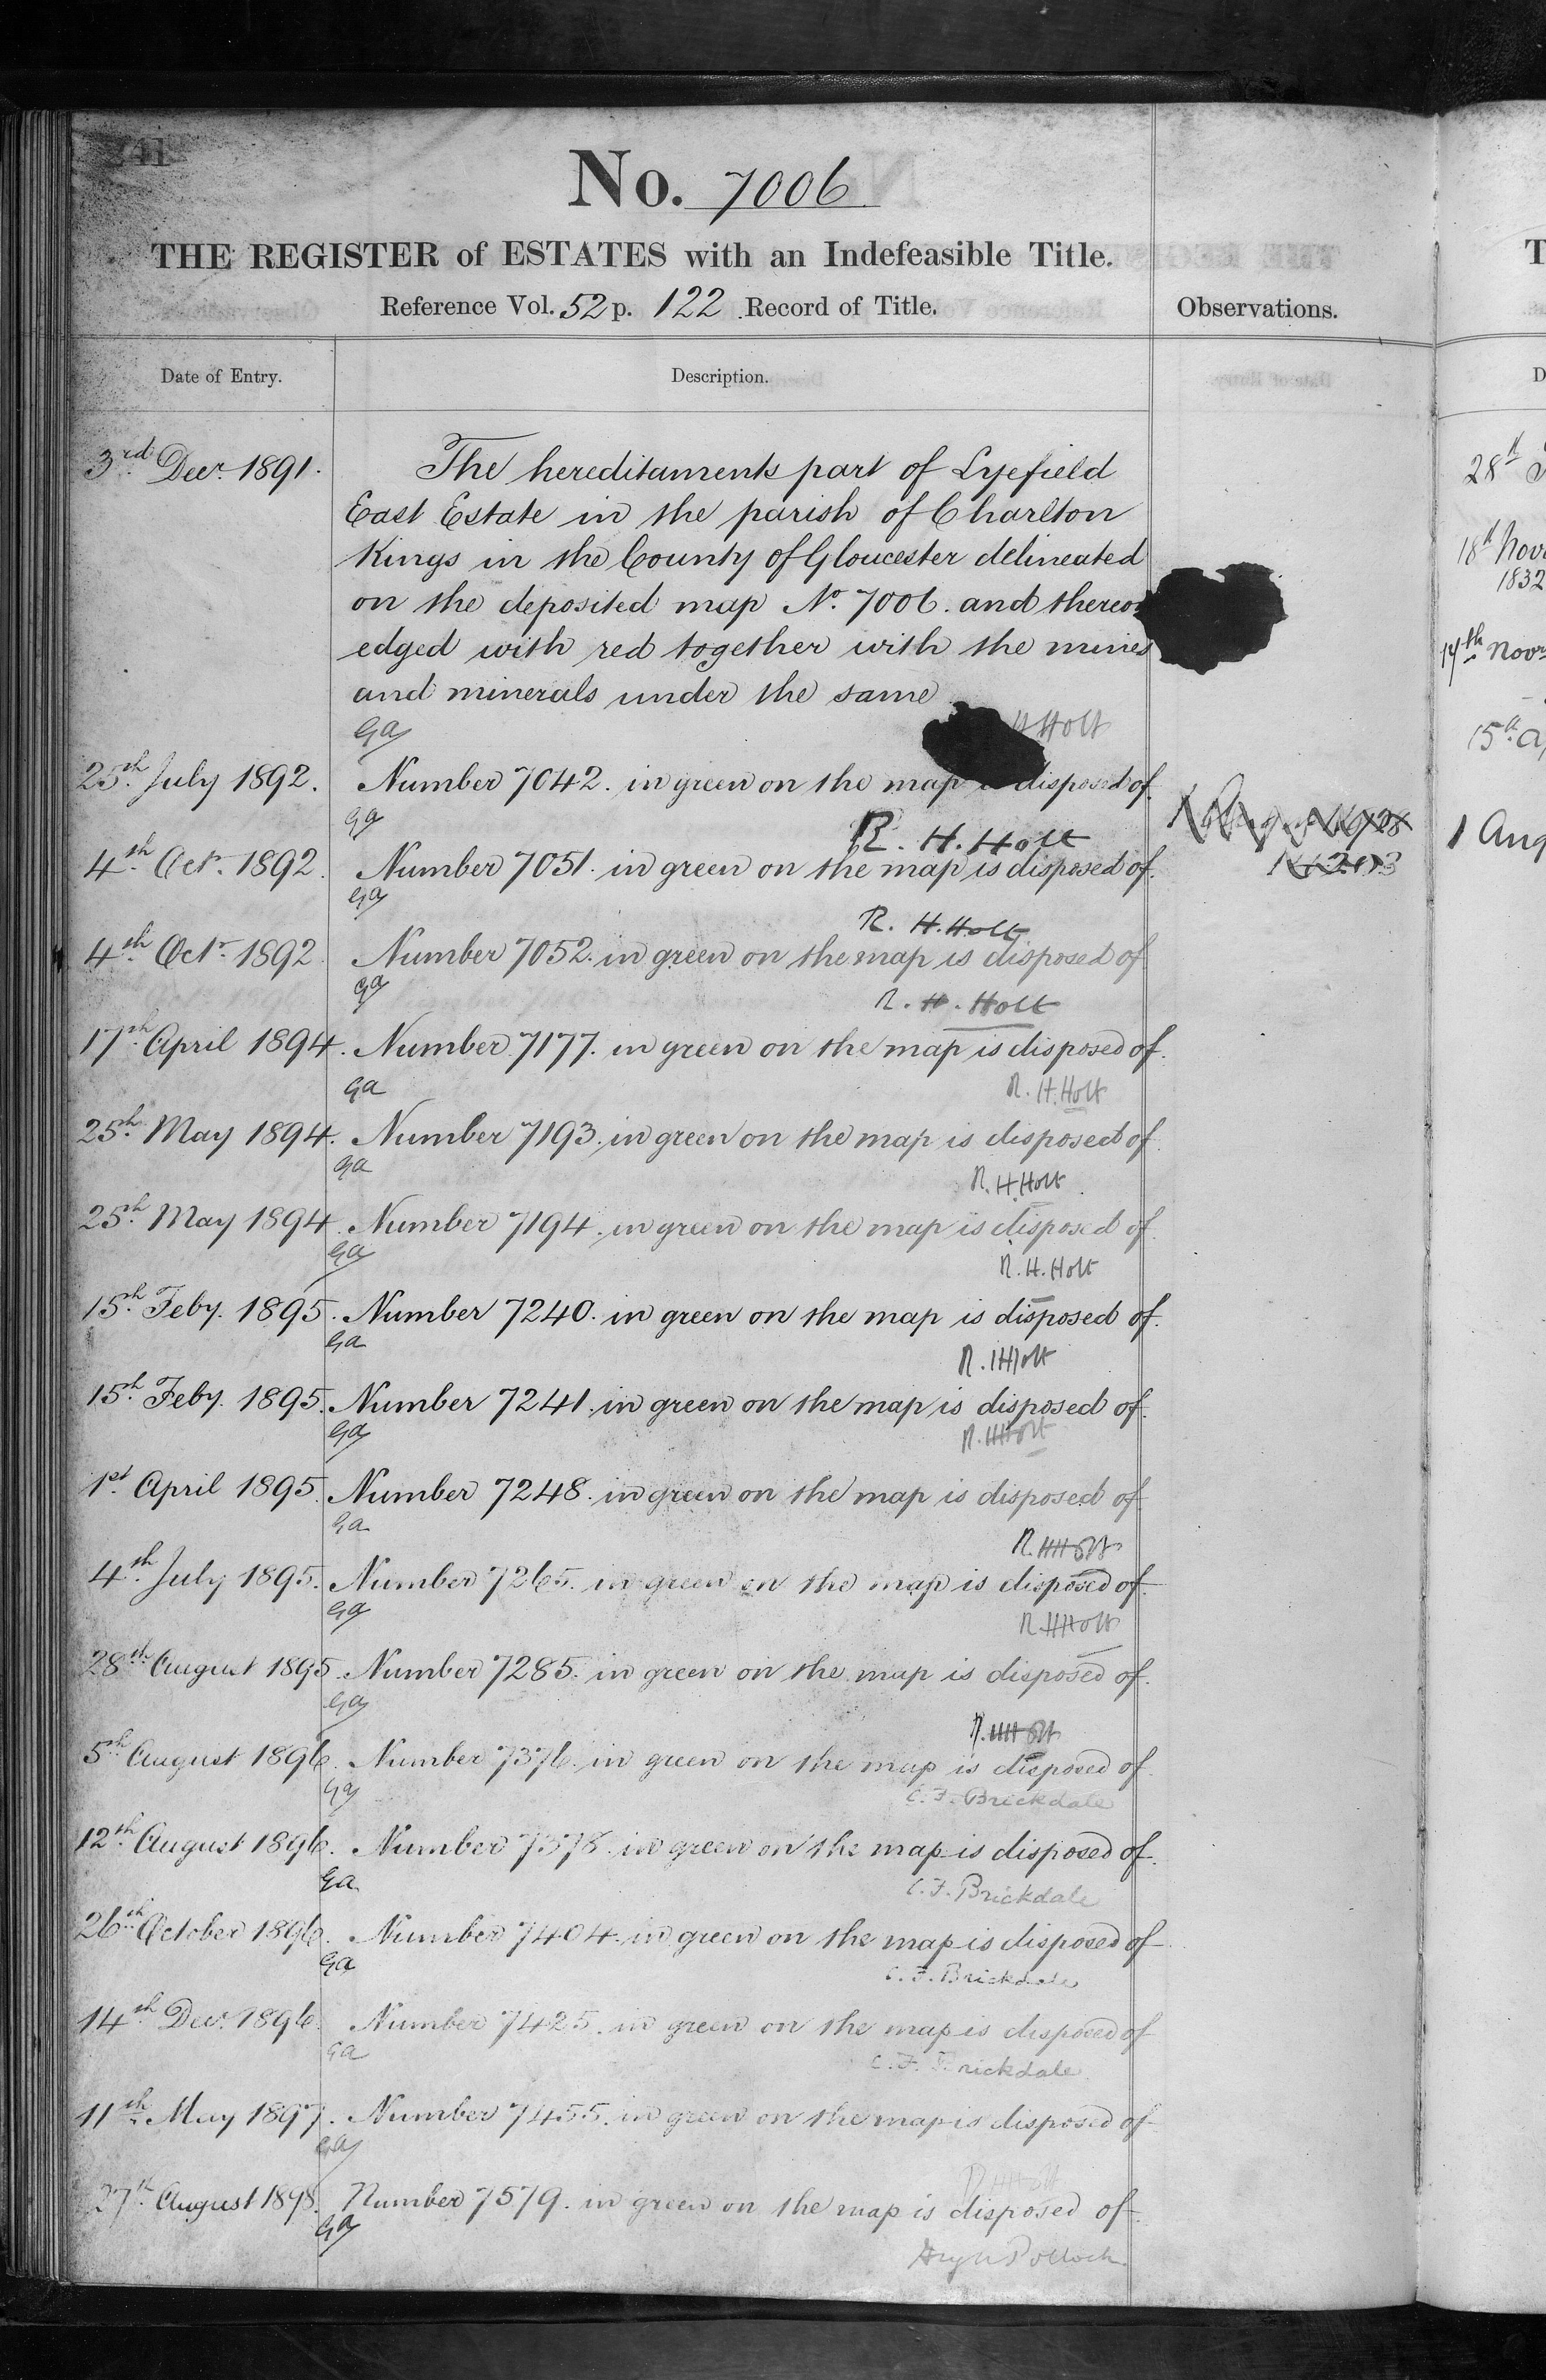 741
No. 7006
THE REGISTER of ESTATES with an Indefeasible Title.
Reference Vol. 52 p. 122 Record of Title.
Observations.
Date of Entry.
Description.
3rd Decr. 1891.
The hereditaments part of Lyefield
East Estate in the parish of Charlton
Kings in the County of Gloucester delineated
on the deposited map No. 7006. and thereon
edged with red together with the mines
and minerals under the same
Ga
H Holt
25th July 1892. Number 7042. in green on the map disposed of.
Ga
R. H. Holt
4th Octr. 1892. Number 7051. in green on the map is disposed of.
Ga
R. H. Holt
4th Octr. 1892. Number 7052. in green on the map is disposed of
Ga
R. H. Holt
17th April 1894. Number 7177. in green on the map is disposed of.
Ga
R. H. Holt
25th May 1894. Number 7193. in green on the map is disposed of.
Ga
R. H. Holt
25th May 1894. Number 7194. in green on the map is disposed of.
Ga
R. H. Holt
15th Feby. 1895. Number 7240. in green on the map is disposed of.
Ga
R. H Holt
15th Feby. 1895. Number 7241. in green on the map is disposed of.
Ga
R. H Holt
1st April 1895. Number 7248. in green on the map is disposed of.
Ga
R. H Holt
4th July 1895. Number 7265. in green on the map is disposed of.
Ga
R. H Holt
28th August 1895. Number 7285. in green on the map is disposed of.
Ga
R. H Holt
5th August 1896. Number 7376. in green on the map is disposed of.
Ga
C. F. Brickdale
12th August 1896. Number 7378. in green on the map is disposed of.
Ga
C. F. Brickdale
26th October 1896. Number 7404. in green on the map is disposed of
Ga
C. F. Brickdale
14th Decr. 1896. Number 7425. in green on the map is disposed of
Ga
C. F. Brickdale
11th May 1897. Number 7455. in green on the map is disposed of
Ga
R. H Holt
27th August 1898. Number 7579. in green on the map is disposed of.
Ga
Pollock
T
D
28th
18th Novr
1832
17th Novr
15th
1 Aug